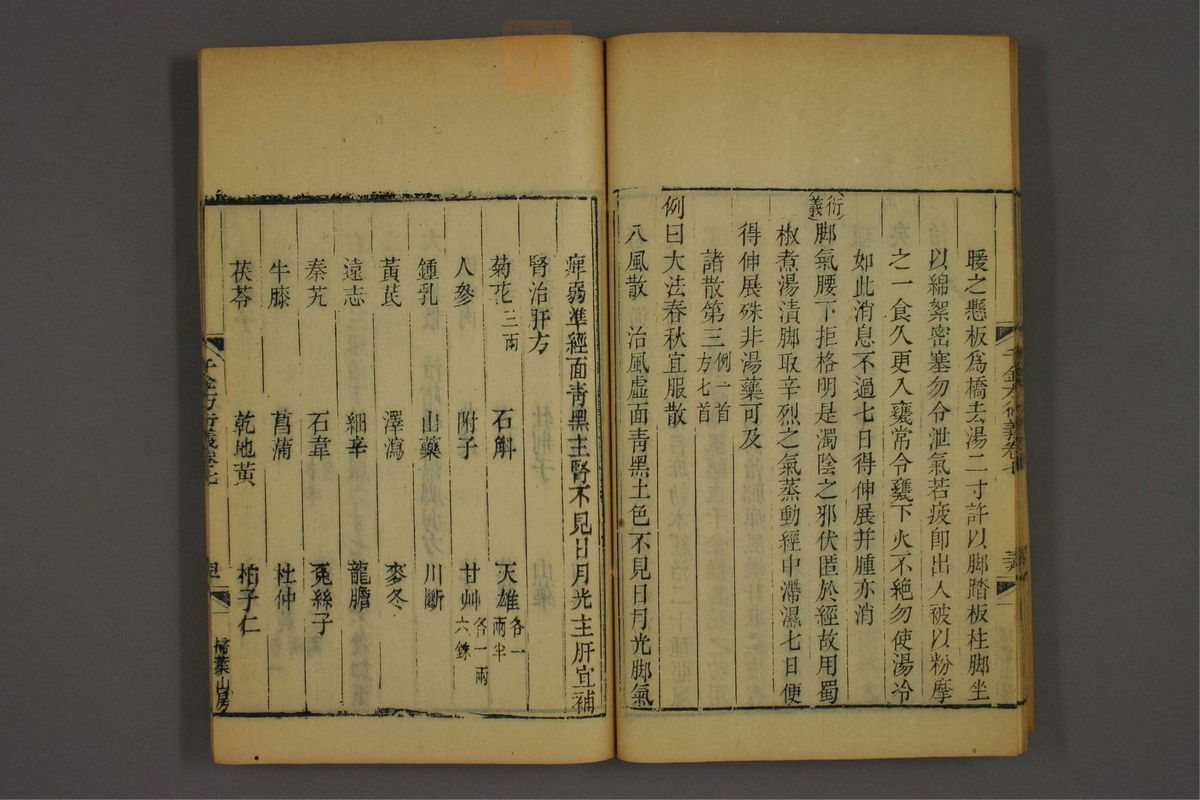 暖之懸板爲橋去湯二寸許以脚踏板柱脚坐
以綿絮密塞勿令泄氣若疲卽出人被以粉摩
之一食久更入甕常令甕下火不絶勿使湯冷
如此消息不過七日得伸展并腫亦消
衍義
脚氣腰下拒格明是濁陰之邪伏匿於經故用蜀
椒煮湯漬脚取辛烈之氣蒸動經中滯濕七日便
得伸展殊非湯藥可及
諸散第三 例一首 方七首
例曰大法春秋宜服散
八風散 治風虛面靑黑土色不見日月光脚氣
痺弱準經面靑黑主腎不見日月光主肝宜補
腎治肝方
菊花三兩 石斛 天雄各一兩半
人參 附子 甘艸各一兩六銖
鍾乳 山藥 川斷
黃芪 澤瀉 麥冬
遠志 細辛 龍膽
秦艽 石韋 菟絲子
牛膝 菖蒲 杜仲
茯苓 乾地黃 柏子仁
千金方衍義卷七
掃葉山房